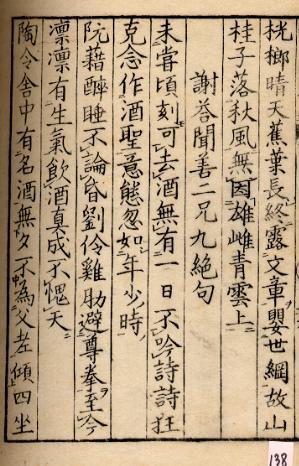 桄榔晴天蕉葉長終露文章嬰世網故山
桂子落秋風無因雄雌青雲上
謝荅聞善二兄九絕句
未嘗頃刻可去酒無有一日不吟詩詩狂
克念作酒聖意態忽如年少時
阮藉醉睡不論昏劉伶雞肋避尊拳至今
凛凛有生氣飲酒真成不愧天
陶令舍中有名酒無夕不為父老傾四坐
138